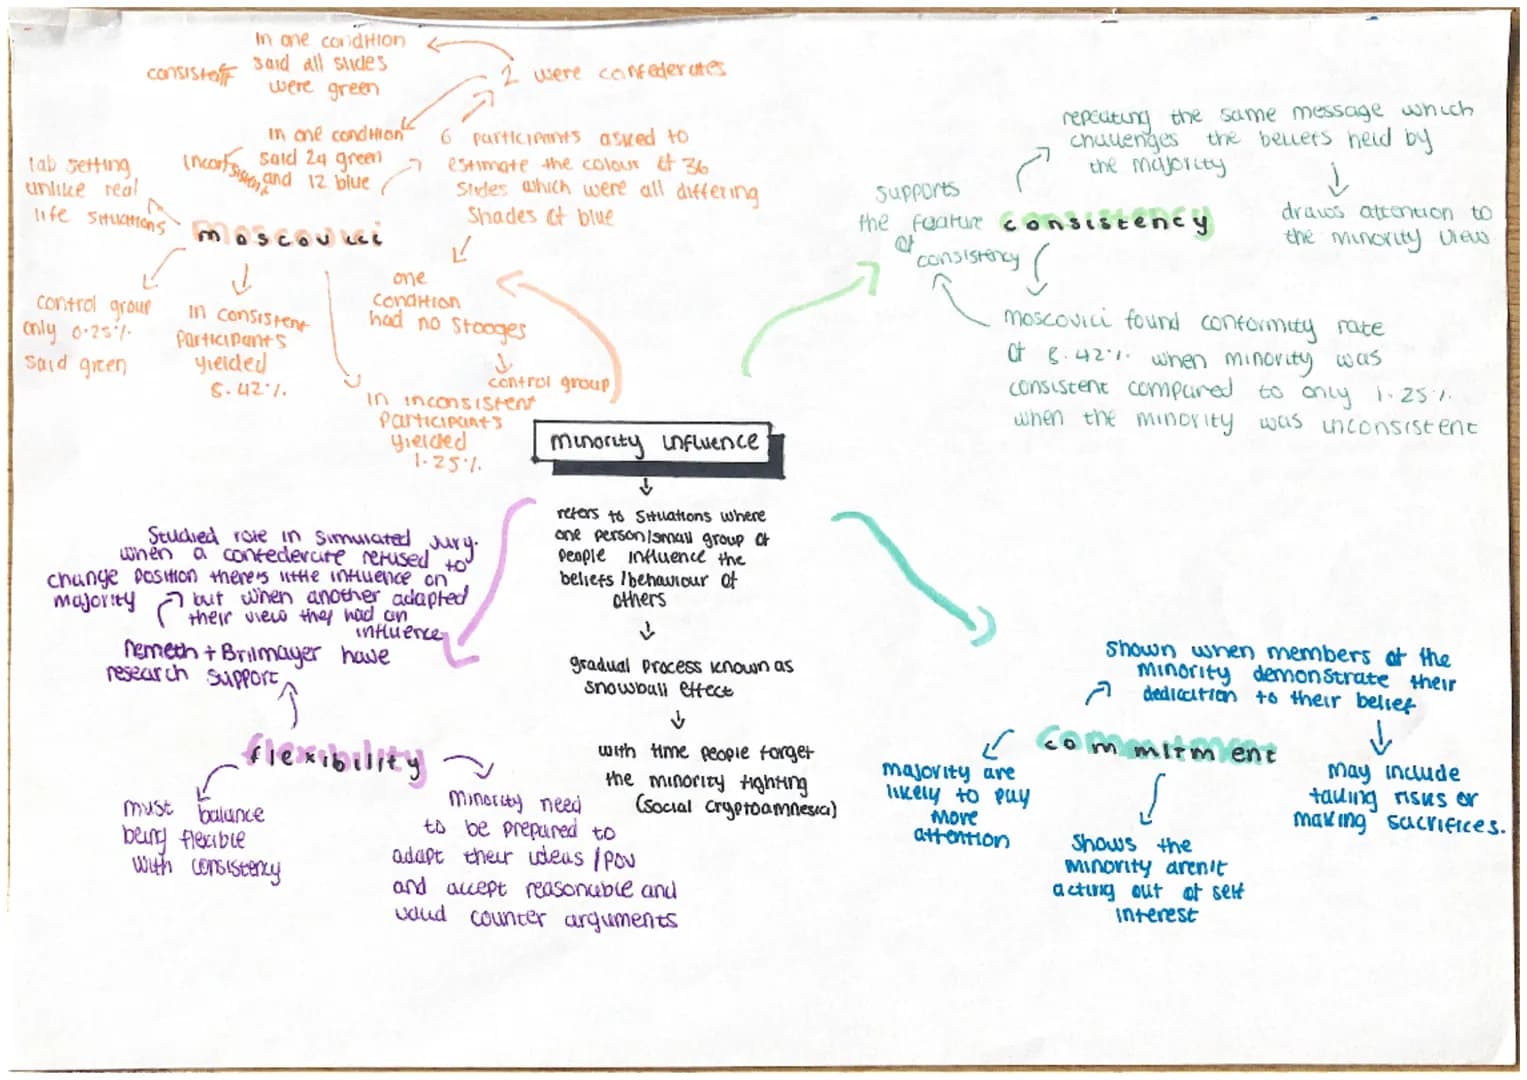 in one condition
said all slides
were green
consistent
2 were confederates
in one condition
said 24 green
and 12 blue
inconsistent
6 participants asked to
estimate the colour of 36
slides which were all differing
shades of blue
lab setting
unlike real
life situations
moscovici
one
condition
had no stooges
control group
control group
only 0.25%
said green
in consistent
participants
yielded
8.42%
in inconsistent
participants
yielded
1.25%
repeating the same message which
challenges the beliefs held by
the majority
supports
the feature
of
consistency
consistency
draws attention to
the minority view
moscovici found conformity rate
of 8.42% when minority was
consistent compared to only 1.25%
when the minority was unconsistent
minority influence
refers to situations where
one person/small group of
people influence the
beliefs/behaviour of
others
gradual process known as
snowball effect
with time people forget
the minority fighting
(social cryptoamnesia)
Studied role in simulated jury.
when a confederate refused to
change position there's little influence on
majority
but when another adapted
their view they had an
influence
Nemeth + Brilmayer have
research support
flexibility
must balance
being flexible
with consistency
minority need
to be prepared to
adapt their ideas/POV
and accept reasonable and
valid counter arguments
shown when members of the
minority demonstrate their
dedication to their belief
commitment
majority are
likely to pay
more
attention
shows the
minority aren't
acting out of self
interest
may include
taking risks or
making sacrifices.